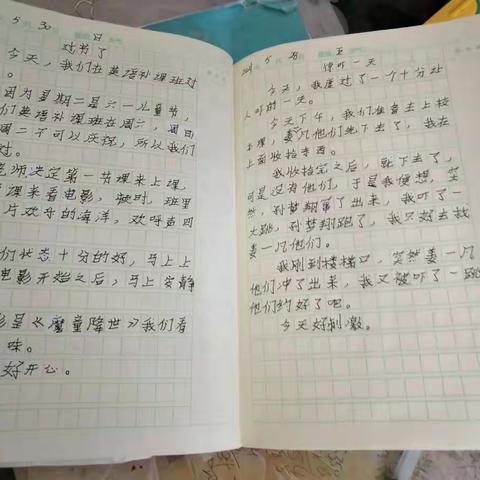 5 30 日
过节了
今天，我们在英语补课班过
。
因为星期二是六一儿童节，
们英语补课班在周六，周日
周二不可以庆祝，所以我们
过。
老师决定第一节课来上课，
课来看电影，顿时，班里
片欢乐的海洋，欢呼声四
们状态十分的好，马上上
电影开始之后，马上安静
影是《魔童降世》我们看
味。
好开心。
5 28 五
惊吓一天
今天，我度过了一个十分让
人吓的一天。
今天下午，我们准备去上校
本课，姜一凡他们先下去了，我在
上面收拾东西。
我收拾完之后，就下去了，
可是没有他们，于是我便想，突
然，孙梦翔窜了出来，我吓了一
大跳，孙梦翔跑了，我只好去找
姜一凡他们。
我刚到楼梯口，突然姜一凡
他们冲了出来，我又被吓了一跳
他们约好了吧。
今天好刺激。